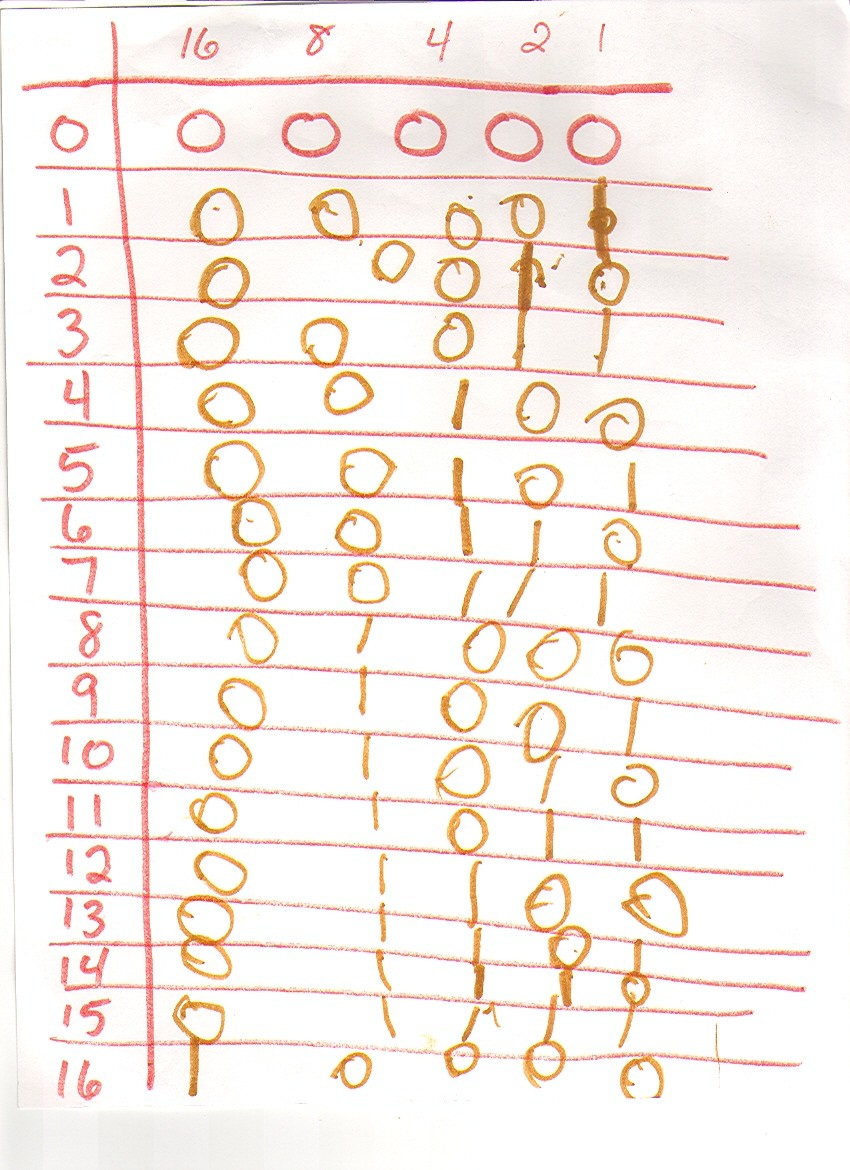 16 8 4 2 1
0 0 0 0 0 0
1 0 0 0 0 1
2 0 0 0 1 0
3 0 0 0 1 1
4 0 0 1 0 0
5 0 0 1 0 1
6 0 0 1 1 0
7 0 0 1 1 1
8 0 1 0 0 0
9 0 1 0 0 1
10 0 1 0 1 0
11 0 1 0 1 1
12 0 1 1 0 0
13 0 1 1 0 1
14 0 1 1 1 0
15 0 1 1 1 1
16 1 0 0 0 0